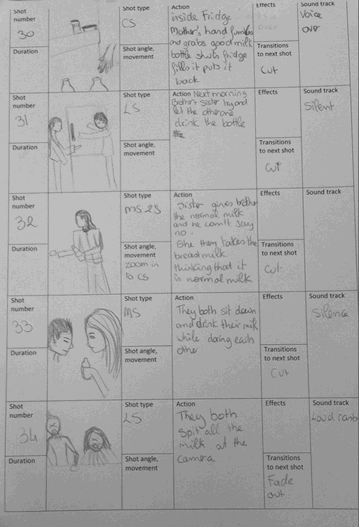 Shot number
30
Duration
Shot type
CS
Shot angle, movement
Action
inside Fridge
Mother's hand fumbles
and grabs good milk
bottle shuts fridge
fills it puts it
back
Effects
Transitions to next shot
Cut
Sound track
Voice
over
Shot number
31
Duration
Shot type
LS
Shot angle, movement
Action Next morning
let the other one
drink the bottle
Effects
Transitions to next shot
Cut
Sound track
Silent
Shot number
32
Duration
Shot type
MS 2S
Shot angle, movement
zoom in
to CS
Action
Sister gives brother
the normal milk
and he can't say
no.
She then takes the
bread milk
thinking that it
is normal milk
Effects
Transitions to next shot
Cut
Sound track
Shot number
33
Duration
Shot type
MS
Shot angle, movement
Action
They both sit down
and drink their milk
while daring each
other
Effects
Transitions to next shot
Cut
Sound track
Silence
Shot number
34
Duration
Shot type
LS
Shot angle, movement
Action
They both
spit all the
milk at the
camera
Effects
Transitions to next shot
Fade
out
Sound track
Loud